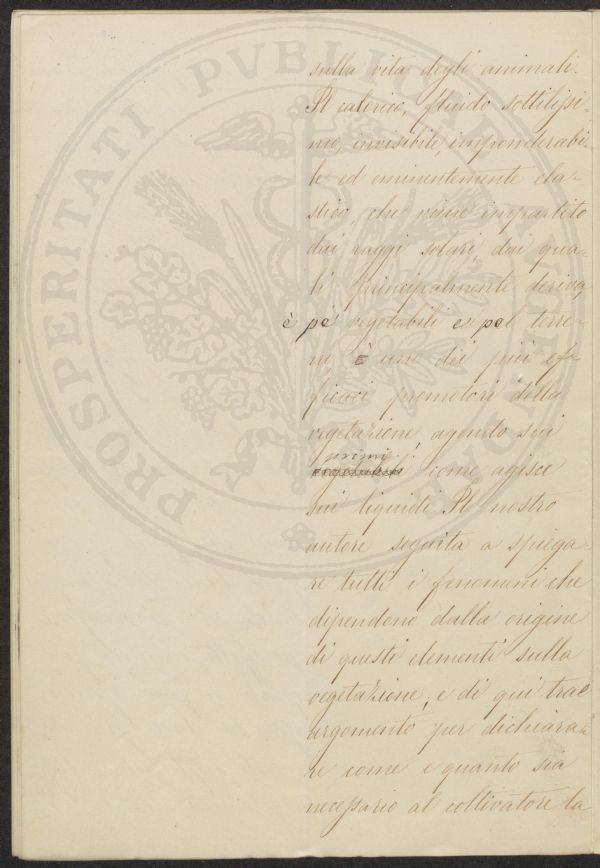 sulla vita degli animali.
Il calorico, fluido sottilissi-
mo, invisibile, imponderabi-
le ed eminentemente ela-
stico, che viene impartito
dai raggi solari, dai qua-
li principalmente deriva,
è pe' vegetabili e pel terre-
no, è uno dei più ef-
ficaci promotori della
vegetazione, agendo sui
primi
come agisce
sui liquidi. Il nostro
autore seguita a spiega-
re tutti i fenomeni che
dipendono dalla origine
di questi elementi sulla
vegetazione, e di qui trae
argomento per dichiara-
re come e quanto sia
necessario al coltivatore la
PROSPERITATI PVBLICAE